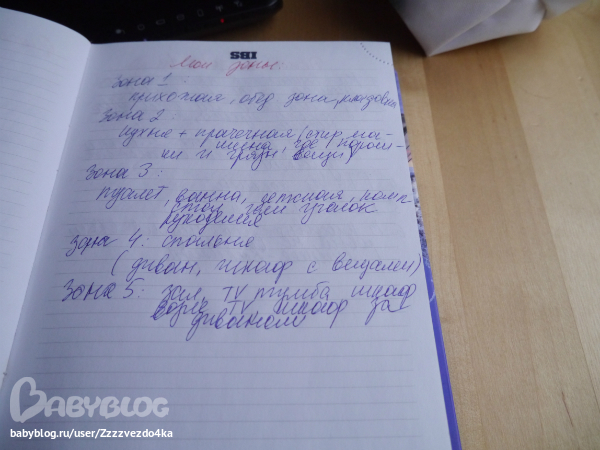 IBS
Мои зоны:
Зона 1:
прихожая, обед зона, кладовка
Зона 2:
кухня + прачечная (стир. ма-
шина, где порош-
ки и грязн вещи)
Зона 3:
туалет, ванна, детская,
уголок
рукоделия
Зона 4: спальня
(диван, шкаф с вещами)
Зона 5: зал, TV тумба шкаф
возле TV шкаф за
диваном
BABYBLOG
babyblog.ru/user/Zzzzvezdo4ka